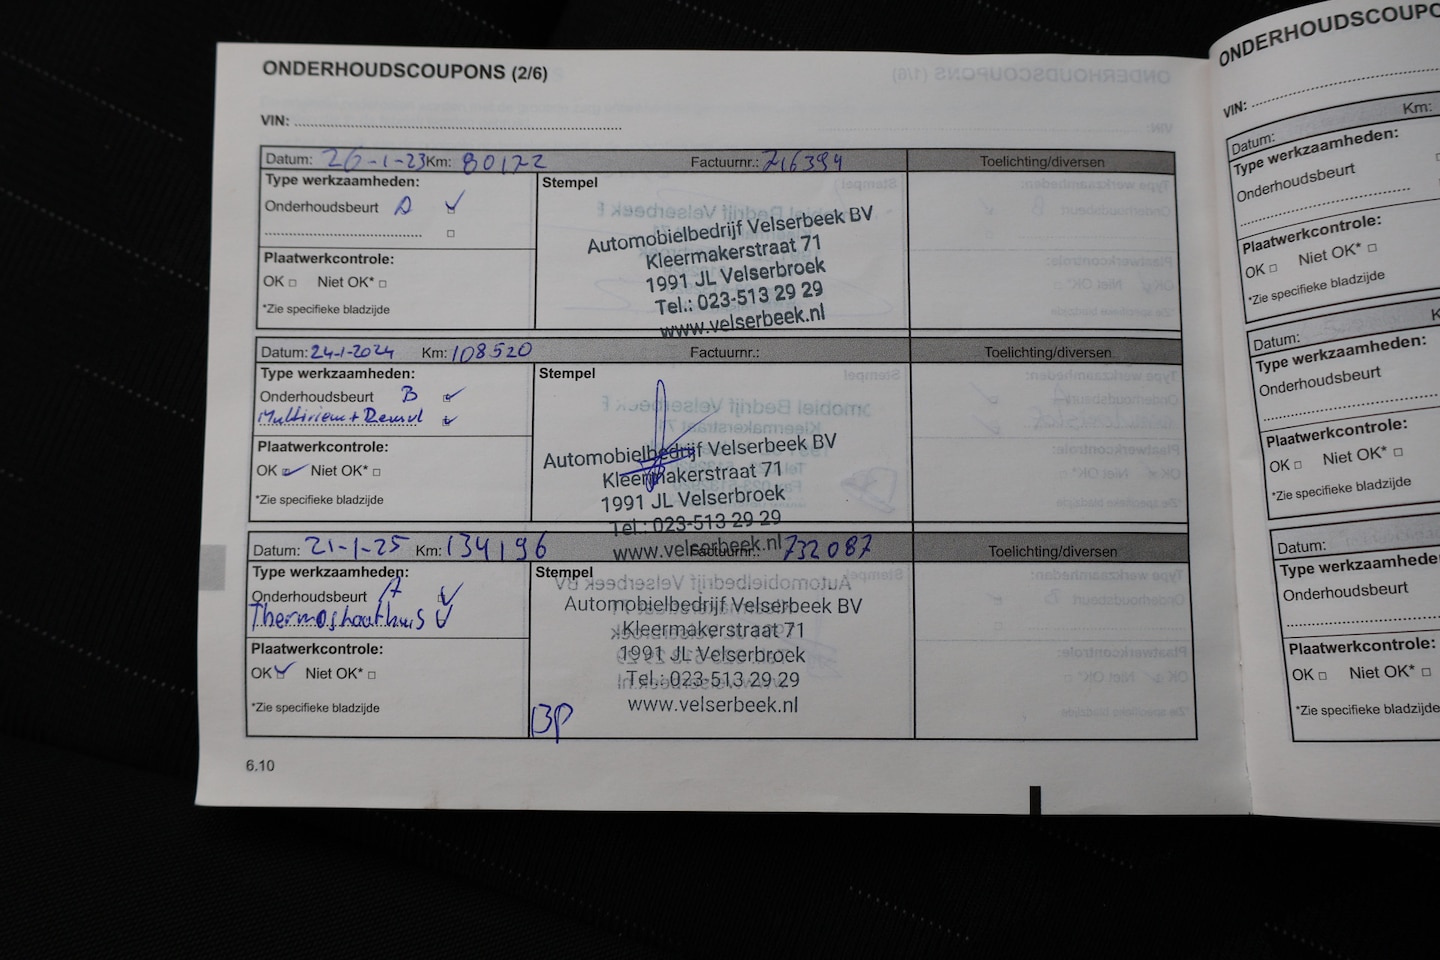 ONDERHOUDSCOUPONS (2/6)
VIN:
Datum: 26-1-23 Km: 80172 Factuurnr.: 716394 Toelichting/diversen
Type werkzaamheden: Stempel
Onderhoudsbeurt A
Plaatwerkcontrole:
OK Niet OK*
*Zie specifieke bladzijde
Automobielbedrijf Velserbeek BV
Kleermakerstraat 71
1991 JL Velserbroek
Tel.: 023-513 29 29
www.velserbeek.nl
Datum: 24-1-2024 Km: 108520 Factuurnr.: Toelichting/diversen
Type werkzaamheden: Stempel
Onderhoudsbeurt B
Multiriem + Remvl
Plaatwerkcontrole:
OK Niet OK*
*Zie specifieke bladzijde
Automobielbedrijf Velserbeek BV
Kleermakerstraat 71
1991 JL Velserbroek
Tel.: 023-513 29 29
www.velserbeek.nl
Datum: 21-1-25 Km: 134196 Factuurnr.: 732087 Toelichting/diversen
Type werkzaamheden: Stempel
Onderhoudsbeurt A
Thermostaathuis
Plaatwerkcontrole:
OK Niet OK*
*Zie specifieke bladzijde
Automobielbedrijf Velserbeek BV
Kleermakerstraat 71
1991 JL Velserbroek
Tel.: 023-513 29 29
www.velserbeek.nl
BP
6.10
ONDERHOUDSCOUPO
VIN:
Datum: Km:
Type werkzaamheden:
Onderhoudsbeurt
Plaatwerkcontrole:
OK Niet OK*
*Zie specifieke bladzijde
Datum: K
Type werkzaamheden:
Onderhoudsbeurt
Plaatwerkcontrole:
OK Niet OK*
*Zie specifieke bladzijde
Datum:
Type werkzaamhede
Onderhoudsbeurt
Plaatwerkcontrole:
OK Niet OK*
*Zie specifieke bladzijde